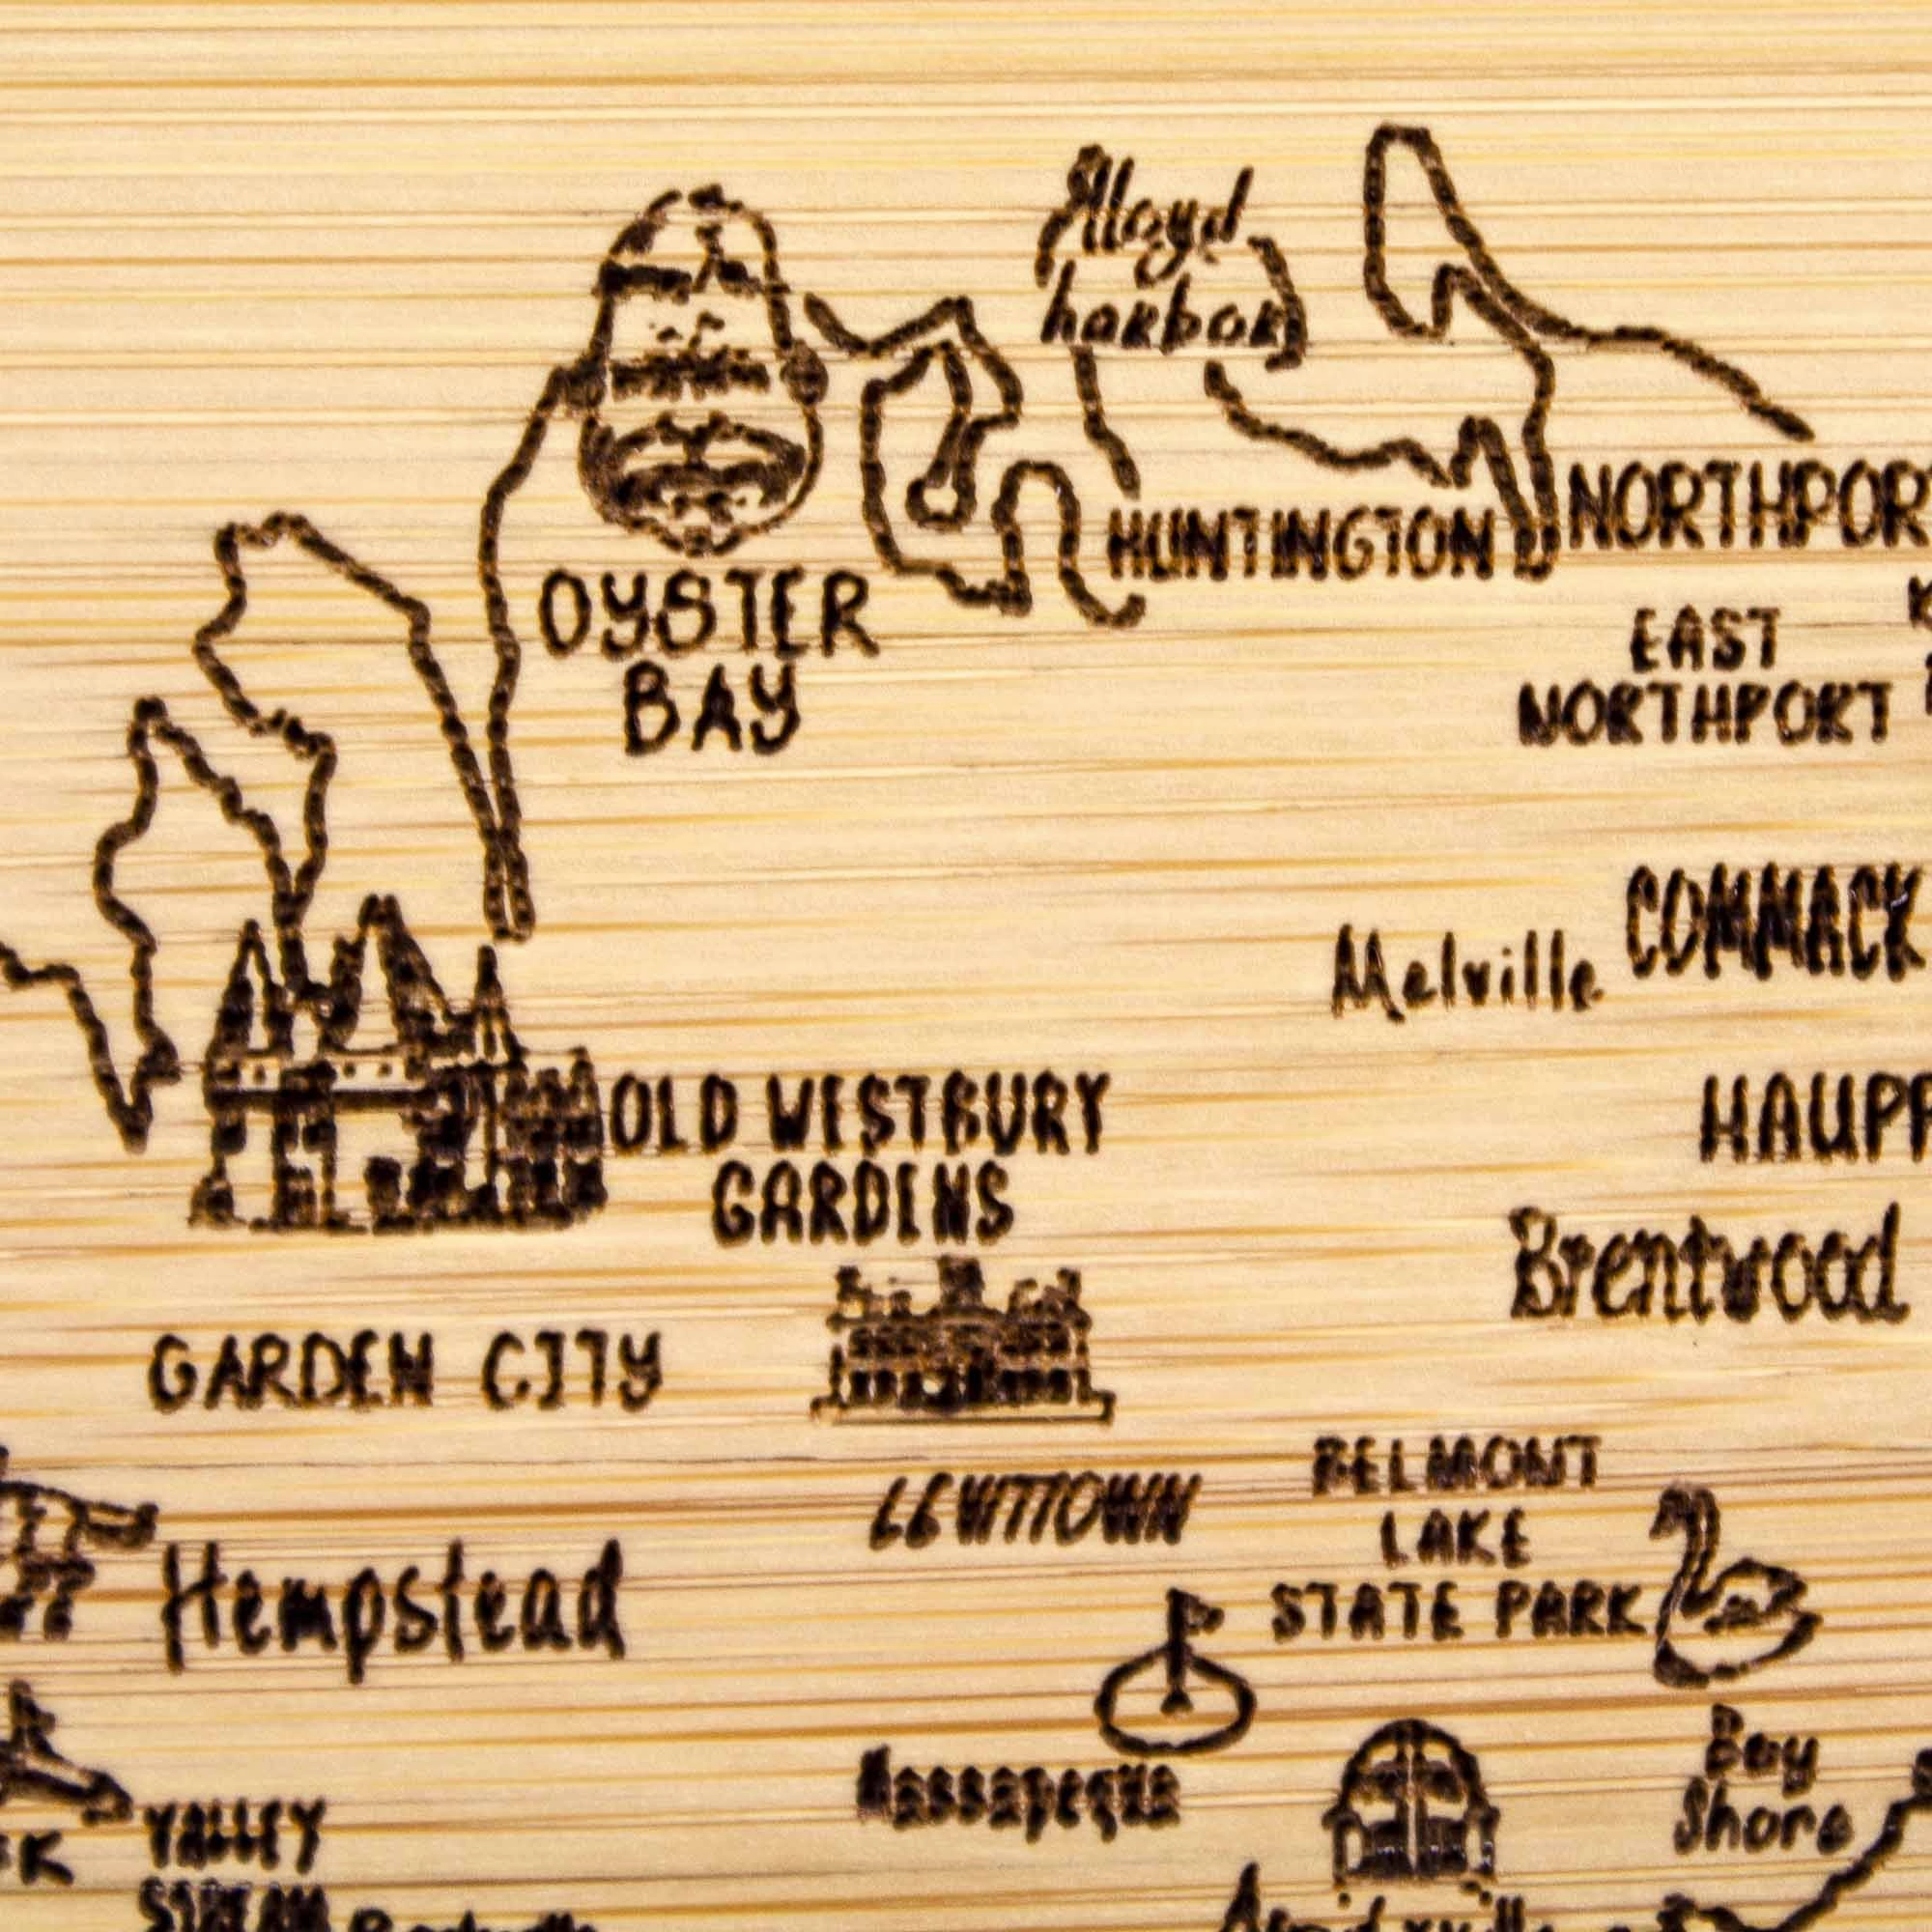 Lloyd
harbor
HUNTINGTON
NORTHPOR
OYSTER
BAY
EAST
NORTHPORT
COMMACK
Melville
OLD WESTBURY
GARDENS
HAUPP
Brentwood
GARDEN CITY
LEVITTOWN
BELMONT
LAKE
STATE PARK
Hempstead
Massapequa
Bay
Shore
VALLEY
STREAM